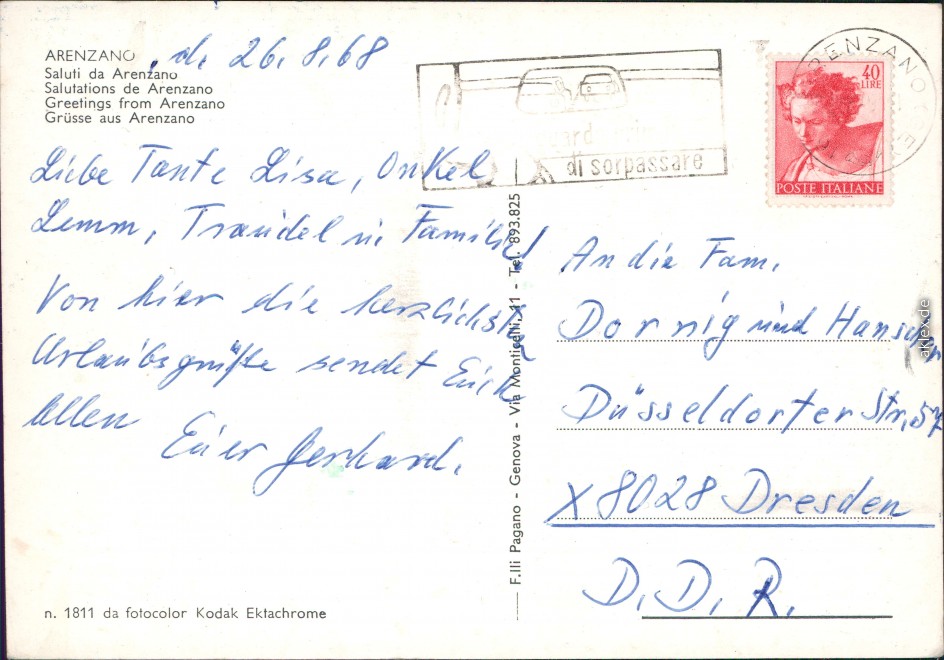 ARENZANO, d. 26.8.68
Saluti da Arenzano
Salutations de Arenzano
Greetings from Arenzano
Grüsse aus Arenzano
Liebe Tante Lisa, Onkel
Lemm, Traudel u. Familie!
Von hier die herzlichsten
Urlaubsgrüße sendet Euch
allen
Euer Gerhard.
n. 1811 da fotocolor Kodak Ektachrome
F.lli Pagano - Genova - Via Monticelli, 11 - Tel. 893.825
di sorpassare
ARENZANO
40
LIRE
POSTE ITALIANE
An die Fam.
Dornig und
Düsseldorfer Str. 57
X 8028 Dresden
D.D.R.
aklex.de